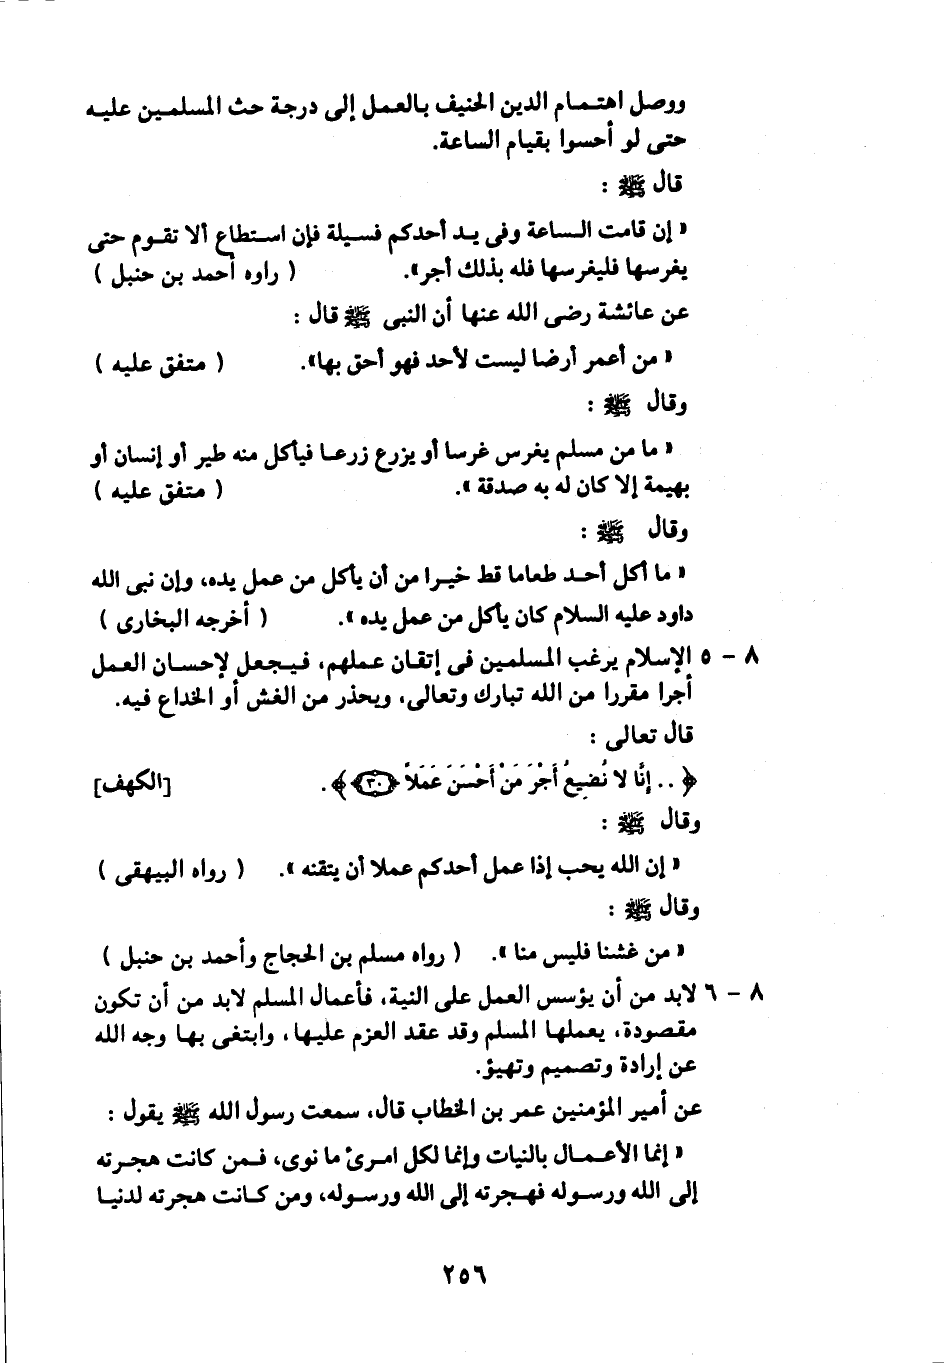 ووصل اهتمام الدين الحنيف بالعمل إلى درجة حث المسلمين عليه
حتى لو أحسوا بقيام الساعة.
قال ﷺ :
« إن قامت الساعة وفى يد أحدكم فسيلة فإن استطاع ألا تقوم حتى
يغرسها فليغرسها فله بذلك أجر». ( راوه أحمد بن حنبل )
عن عائشة رضى الله عنها أن النبى ﷺ قال :
« من أعمر أرضا ليست لأحد فهو أحق بها». ( متفق عليه )
وقال ﷺ :
« ما من مسلم يغرس غرسا أو يزرع زرعا فيأكل منه طير أو إنسان أو
بهيمة إلا كان له به صدقة ». ( متفق عليه )
وقال ﷺ :
« ما أكل أحد طعاما قط خيرا من أن يأكل من عمل يده، وإن نبى الله
داود عليه السلام كان يأكل من عمل يده ». ( أخرجه البخارى )
٨ - ٥ الإسلام يرغب المسلمين فى إتقان عملهم، فيجعل لإحسان العمل
أجرا مقررا من الله تبارك وتعالى، ويحذر من الغش أو الخداع فيه.
قال تعالى :
﴿ .. إِنَّا لا نُضِيعُ أَجْرَ مَنْ أَحْسَنَ عَمَلاً ﴿٣٠﴾﴾. [الكهف]
وقال ﷺ :
« إن الله يحب إذا عمل أحدكم عملا أن يتقنه ». ( رواه البيهقى )
وقال ﷺ :
« من غشنا فليس منا ». ( رواه مسلم بن الحجاج وأحمد بن حنبل )
٨ - ٦ لابد من أن يؤسس العمل على النية، فأعمال المسلم لابد من أن تكون
مقصودة، يعملها المسلم وقد عقد العزم عليها، وابتغى بها وجه الله
عن إرادة وتصميم وتهيؤ.
عن أمير المؤمنين عمر بن الخطاب قال، سمعت رسول الله ﷺ يقول :
« إنما الأعمال بالنيات وإنما لكل امرئ ما نوى، فمن كانت هجرته
إلى الله ورسوله فهجرته إلى الله ورسوله، ومن كانت هجرته لدنيا
٢٥٦